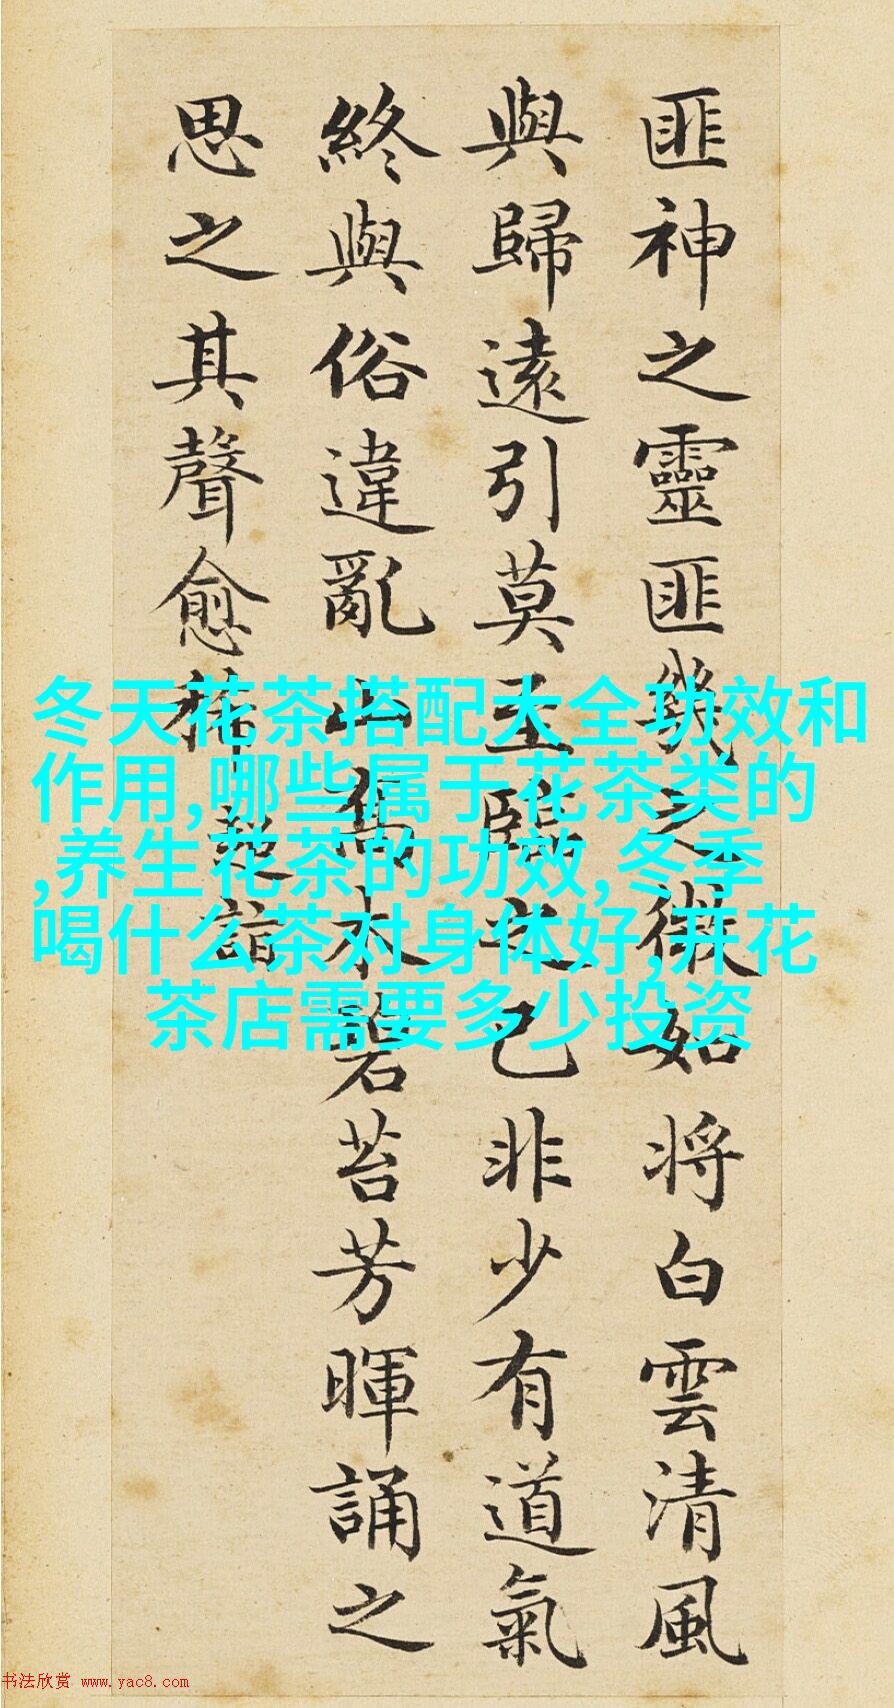 匪神之靈匪幾之微如將白雲清風
與歸遠引莫至臨之已非少有道氣
終與俗違亂山喬木碧苔芳暉誦之
思之其聲愈稀
超詣
冬天花茶搭配大全功效和
作用,哪些属于花茶类的
,养生花茶的功效,冬季
喝什么茶对身体好,开花
茶店需要多少投资
书法欣赏 www.yac8.com